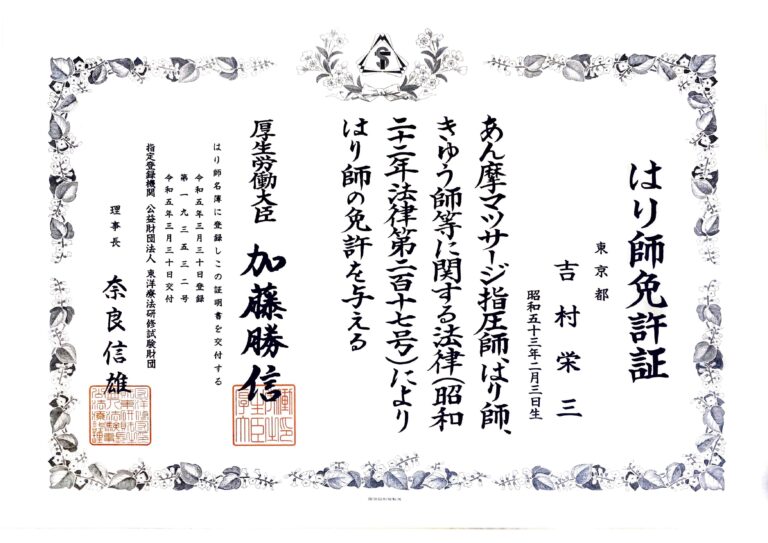 はり師免許証
東京都
吉村栄三
昭和五十三年二月三日生
あん摩マツサージ指圧師、はり師、
きゅう師等に関する法律(昭和
二十二年法律第二百十七号)により
はり師の免許を与える
厚生労働大臣 加藤勝信
はり師名簿に登録しこの証明書を交付する
令和五年三月三十日登録
第一九三五三二号
令和五年三月三十日交付
指定登録機関 公益財団法人 東洋療法研修試験財団
理事長 奈良信雄